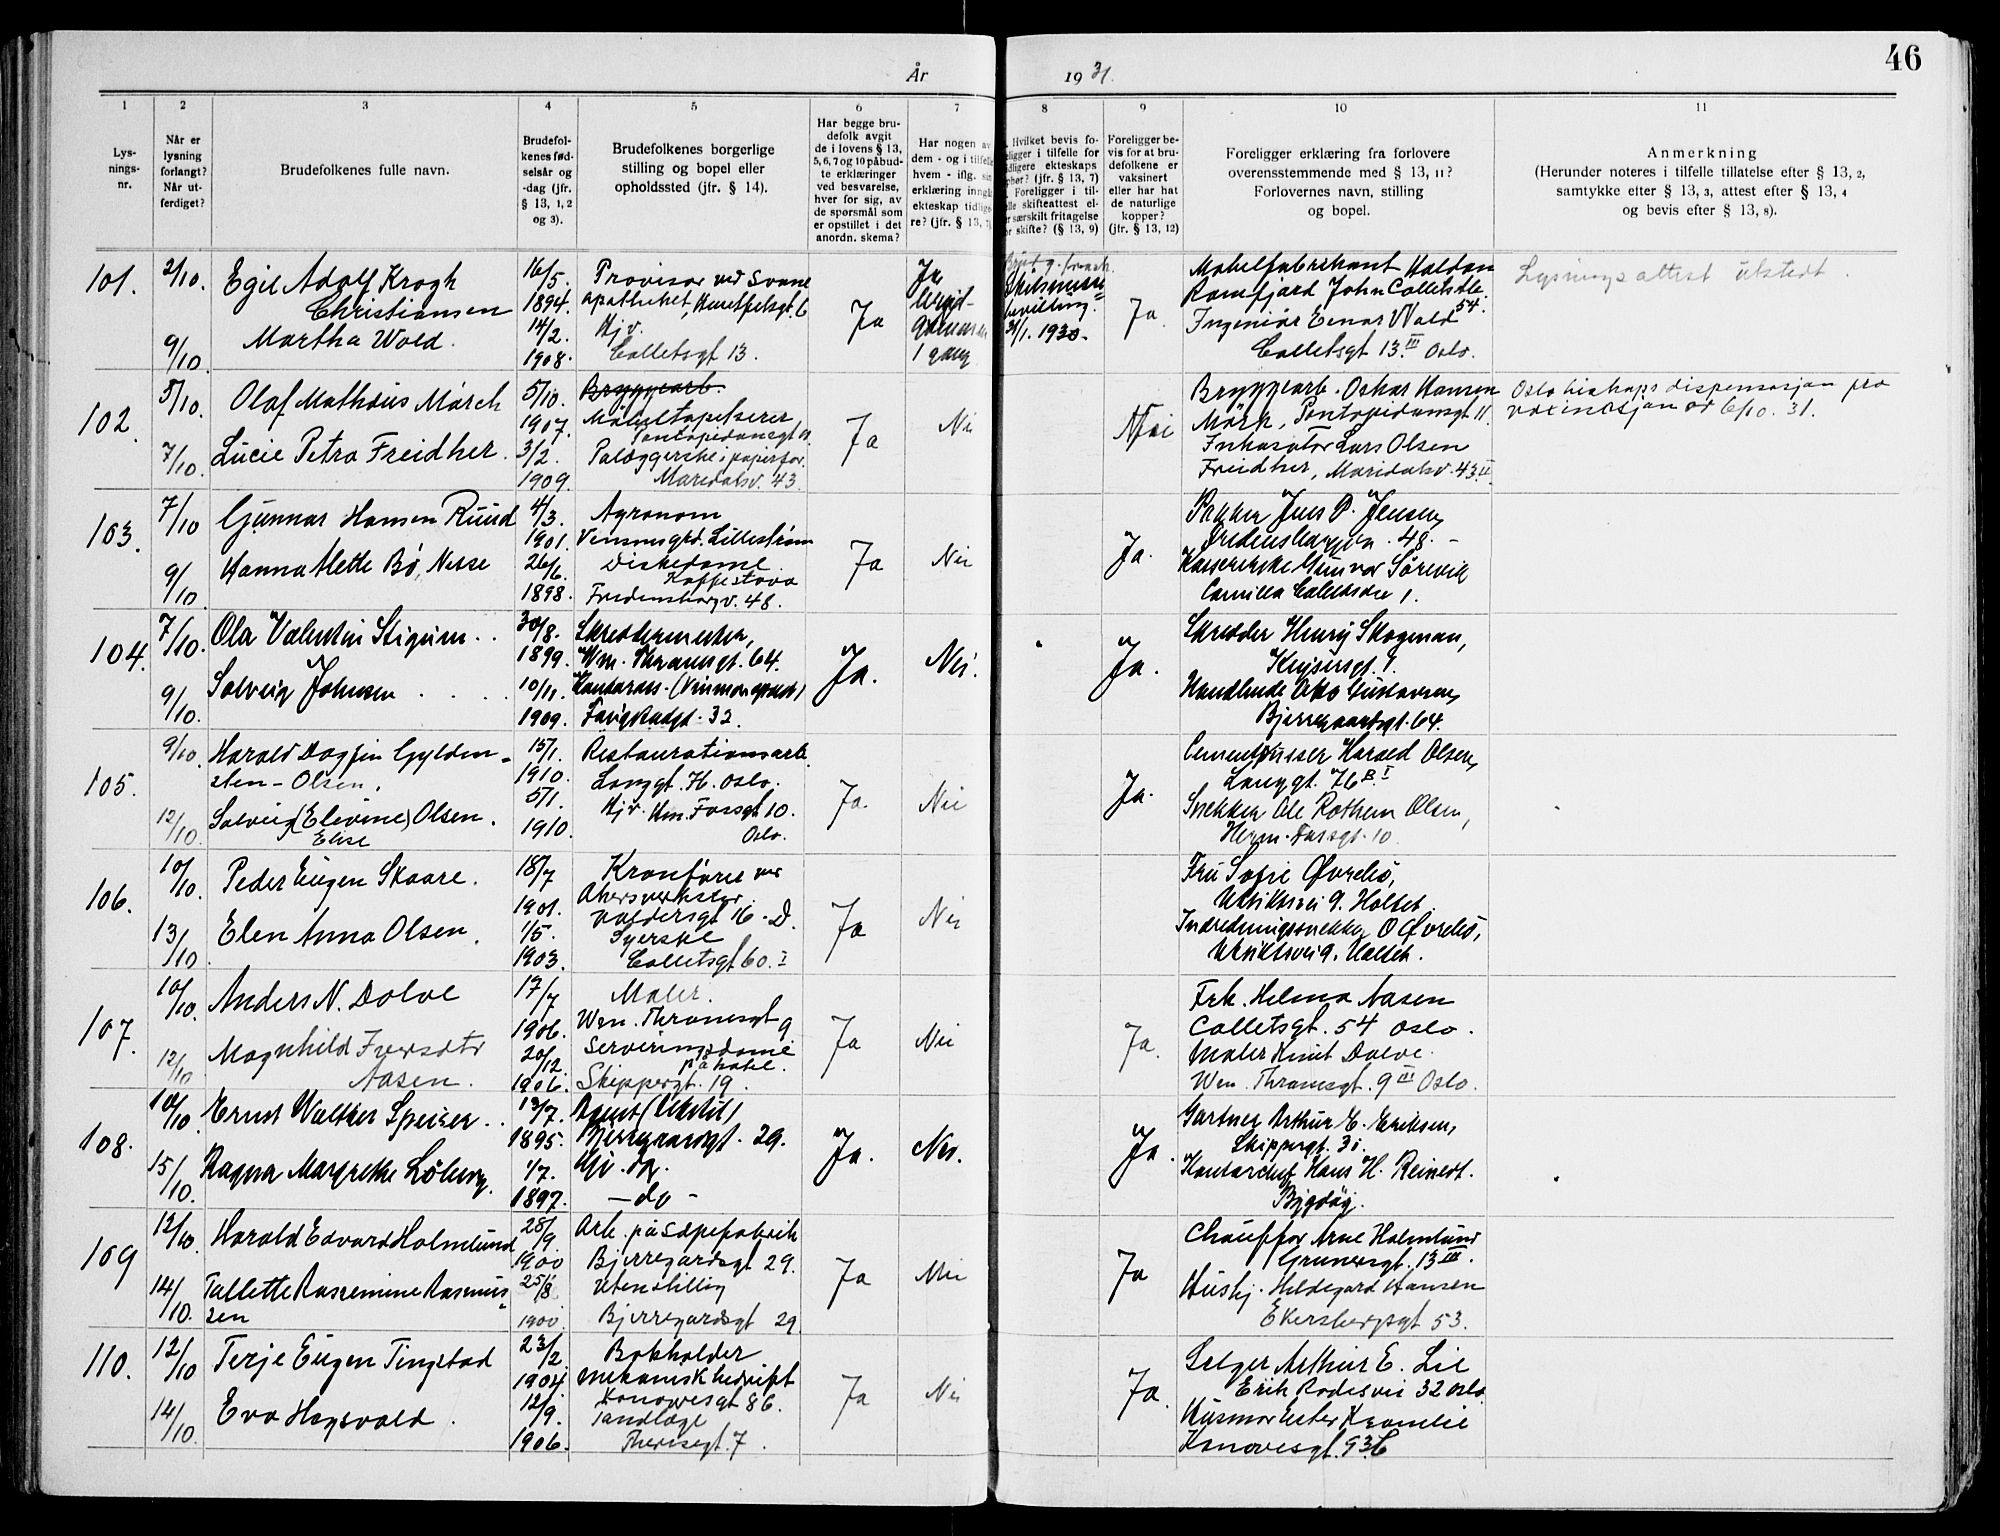 46
År 1931.
1 2 3 4 5 6 7 8 9 10 11
Lysningsnr.
Når er lysning forlangt? Når utferdiget?
Brudefolkenes fulle navn.
Brudefolkenes fødselsår og -dag (jfr. § 13, 1, 2 og 3).
Brudefolkenes borgerlige stilling og bopel eller opholdssted (jfr. § 14).
Har begge brudefolk avgit de i lovens § 13, 5, 6, 7 og 10 påbudte erklæringer ved besvarelse, hver for sig, av de spørsmål som er opstillet i det anordn. skema?
Har nogen av dem - og i tilfelle hvem - iflg. sin erklæring inngått ekteskap tidligere? (jfr. § 13, 7)
Hvilket bevis foreligger i tilfelle for tidligere ekteskaps ophør? (jfr. § 13, 7) Foreligger i tilfelle skifteattest eller særskilt fritagelse for skifte? (§ 13, 9)
Foreligger bevis for at brudefolkene er vaksinert eller har hat de naturlige kopper? (jfr. § 13, 12)
Foreligger erklæring fra forlovere overensstemmende med § 13, 11? Forlovernes navn, stilling og bopel.
Anmerkning
(Herunder noteres i tilfelle tillatelse efter § 13, 2, samtykke efter § 13, 3, attest efter § 13, 4 og bevis efter § 13, 8).
101. 2/10 9/10.
Egil Adolf Krogh Christiansen
Martha Wold.
16/5. 1894. 14/2. 1908.
Provisor ved Svane
apotheket,
Hjv.
Colletsgt 13.
Ja
Ja
1 gang
31/1. 1930.
Ja.
Møbelfabrikant Haldan
Ramfjord John Colletsalle 54.
Ingeniør Einar Wold
Colletsgt 13 III Oslo.
Lysningsattest utstedt.
102. 5/10. 7/10.
Olaf Mathæus Mörch
Lucie Petra Freidher.
5/10. 1907. 3/2. 1909.
Bryggearb.
Møbeltapetserer
Pontopidansgt 11
Palæggerske i papirfor.
Maridalsv. 43.
Ja
Nei
Nei
Bryggearb. Oskar Hansen
Mörk, Pontopidansgt 11.
Inkasator Lars Olsen
Freidher, Maridalsv. 43 II.
Oslo biskops dispensasjon fra
vaxinasjon av 6/10. 31.
103. 7/10 9/10.
Gunnar Hansen Ruud
Hanna Mette Bö, Nesse
4/3. 1901. 26/6. 1898.
Agronom
Lilleström
Diskedame.
Kaffestova
Fredensborgv. 48.
Ja
Nei
Ja.
Pakker Jens P. Jensen,
Fredensborgvn. 48.
Kasererske Gunvor Sörevik
Camilla Colletsvei 1.
104. 7/10. 9/10.
Ola Valentin Stigum..
Solveig Johnsen . . .
30/8. 1899. 10/11. 1909.
Skreddermester,
Wm. Thranesgt. 64.
Kontorass. (Vinmonopolet)
Fougstadgt. 32.
Ja.
Nei.
Ja.
Skredder Henry Skogman,
Keysersgt. 1.
Handlende Otto Gustavsen,
Bjerregaardsgt. 64.
105. 9/10 12/10.
Harald Dagfin Gylden-
sten-Olsen.
Solveig (Elevine) Olsen.
Elise
15/1. 1910. 5/1. 1910.
Restaurationsarb.
Langgt. H. Oslo.
Hjv. Hm. Fossgt 10.
Oslo.
Ja.
Nei
Ja.
Cementpusser Harald Olsen,
Langgt. 76 B I
Snekker Ole Rothem Olsen,
Herm. Fossgt. 10.
106. 10/10. 13/10.
Peder Eugen Skaare.
Elen Anna Olsen.
18/7 1901. 1/5. 1903.
Kranförer ved
Akersverksted.
Valdersgt 16. D.
Syerske
Colletsgt 60. I
Ja
Nei
Fru Sofie Øvrebö,
Utsiktsvei 9. Holtet.
Indredningssnekker O Øvrebö,
Utsiktsvei 9. Holtet.
107. 10/10. 12/10
Anders N. Dolve
Magnhild Iversdtr
Aasen.
17/7 1906. 20/12. 1906.
Maler.
Wm. Thranesgt 9
Serveringsdame
på hotel.
Skippergt. 19.
Ja
Nei
Ja.
Frk. Helma Aasen
Colletsgt. 54 Oslo.
Maler Knut Dolve.
Wm. Thranesgt. 9 III Oslo.
108. 10/10. 15/10.
Ernst Walther Speiser..
Ragna Margrethe Löberg.
13/7. 1895. 1/7. 1897.
Agent (Tekstil)
Bjerregaardsgt. 29.
Hjv.
— do —
Ja.
Nei.
Ja.
Gartner Arthur E. Eriksen,
Skippergt. 30.
Kontorchef Hans H. Reinert.
Bygdöy.
109 12/10. 14/10.
Harald Edvard Holmlund
Tallette Rassemine Rasmus-
sen
28/9. 1900 25/8. 1900.
Arb. på Sæpefabrik
Bjerregardsgt 29.
Uten stilling
Bjerregardsgt 29.
Ja
Nei
Ja
Chauffør Arne Holmlund
Grunersgt. 13 III.
Hushj. Hildegard Hansen
Ekersbergsgt 53.
110. 12/10 14/10.
Terje Eugen Tingstad
Eva Hogsvold.
23/2. 1904. 12/9. 1906.
Bokholder
mekanisk bedrift
Konowsgt 86.
Tandlæge
Theresegt. 7.
Ja
Nei
Ja.
Selger Arthur E. Lie
Eriks Rodesvei 32 Oslo.
Husmor Ester
Konowsgt. 93.